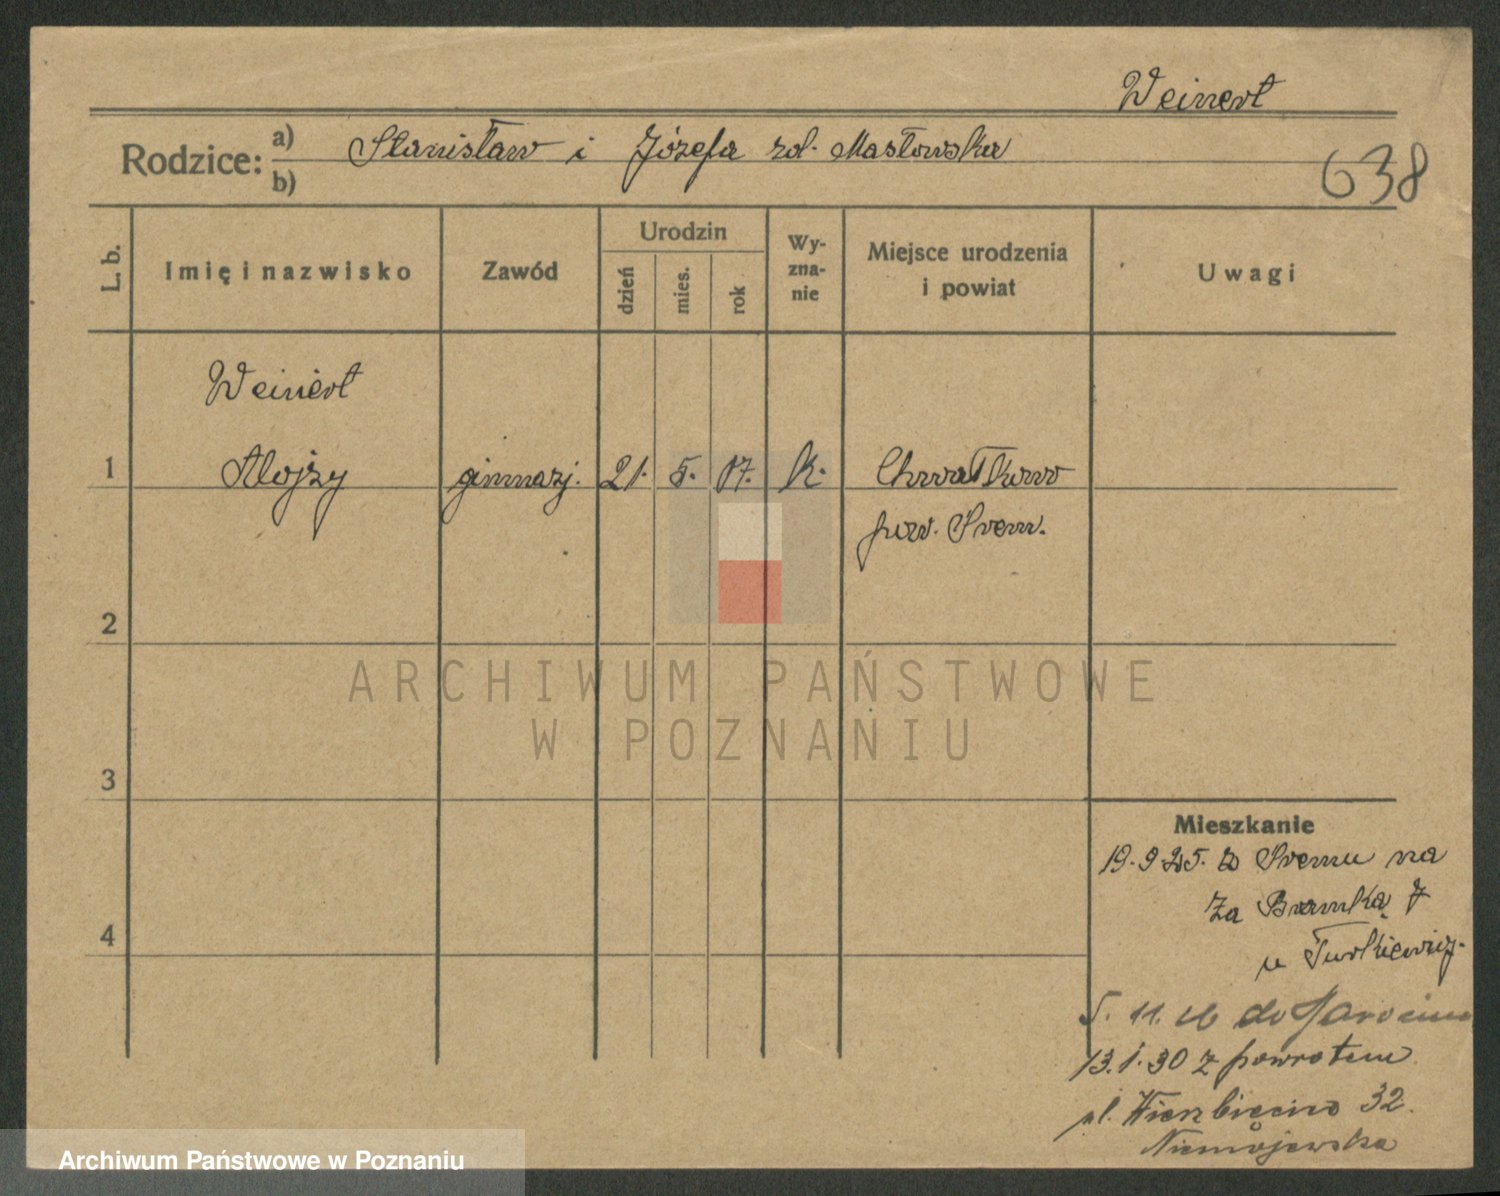 Weinert
Rodzice: a) Stanisław i Józefa zd. Masłowska
b)
638
L. b.
Imię i nazwisko
Zawód
Urodzin
dzień
mies.
rok
Wy-
zna-
nie
Miejsce urodzenia
i powiat
Uwagi
Weinert
1 Alojzy gimnazj. 21. 5. 07. k. Chwałkowo
pow. Śrem.
2
3
4
Mieszkanie
19.9.25. z Śremu na
Za Bramką 7
u Turkiewicz.
5. 11. 26 do Jarocina
13.1.30 z powrotem
ul. Wierzbięcice 32.
Niemojewska
ARCHIWUM PAŃSTWOWE
W POZNANIU
Archiwum Państwowe w Poznaniu